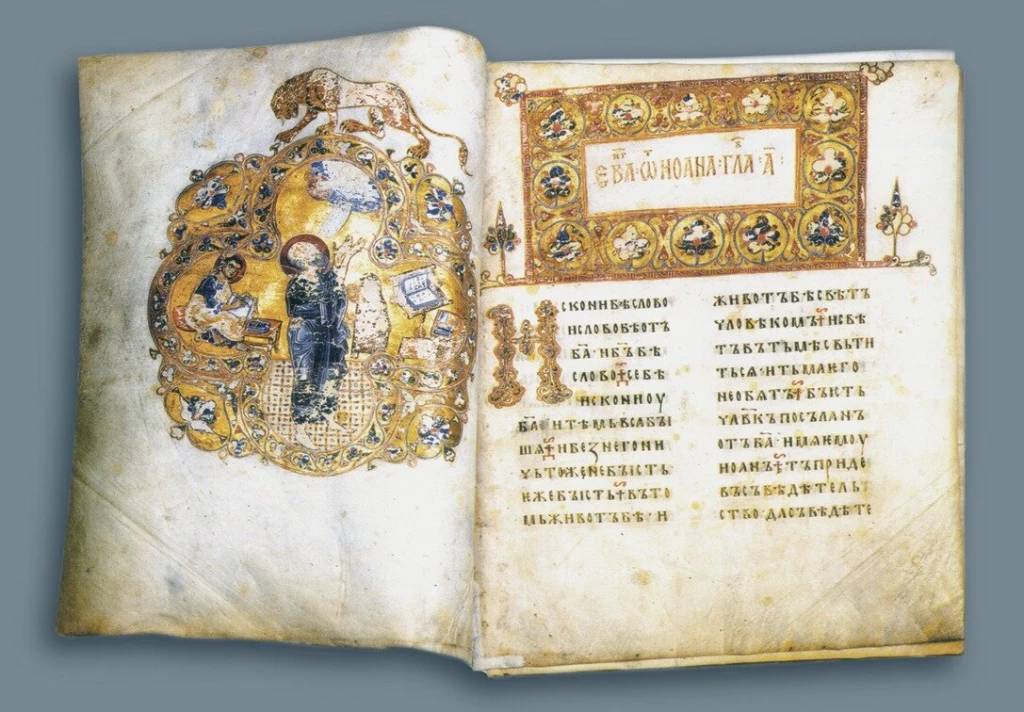 ЕВА҃Ѡ ИОАНА·ГЛА·А҃
ИСКОНИБѢСЛОВО
ИСЛОВОБѢОТЪ
БА҃·ИБЪ҃БѢ
СЛОВО·СЕБѢ
ИСКОНИОУ
БА҃·ИТѢМЬВЬСАБЫ
ШѦ·ИБЕЗНЕГОНИ
ЧЬТОЖЕНЕБЫСТЬ
ЕЖЕБЫСТЬ·ВЪТО
МЬЖИВОТЪБѢ·И
ЖИВОТЪБѢСВѢТЪ
ЧЛОВѢКОМЪ·ИСВѢ
ТЪВЪТЬМѢСВЬТИ
ТЬСѦ·ИТЬМАѤГО
НЕОБѦТЪ·БЫСТЬ
ЧЛВ҃КЪПОСЪЛАНЪ
ОТЪБА҃·ИМѦѤМОУ
ИОАНЪ·ТЪПРИДЕ
ВЪСЪВѢДѢТЕЛЬ
СТВО·ДАСЪВѢДѢТЕ